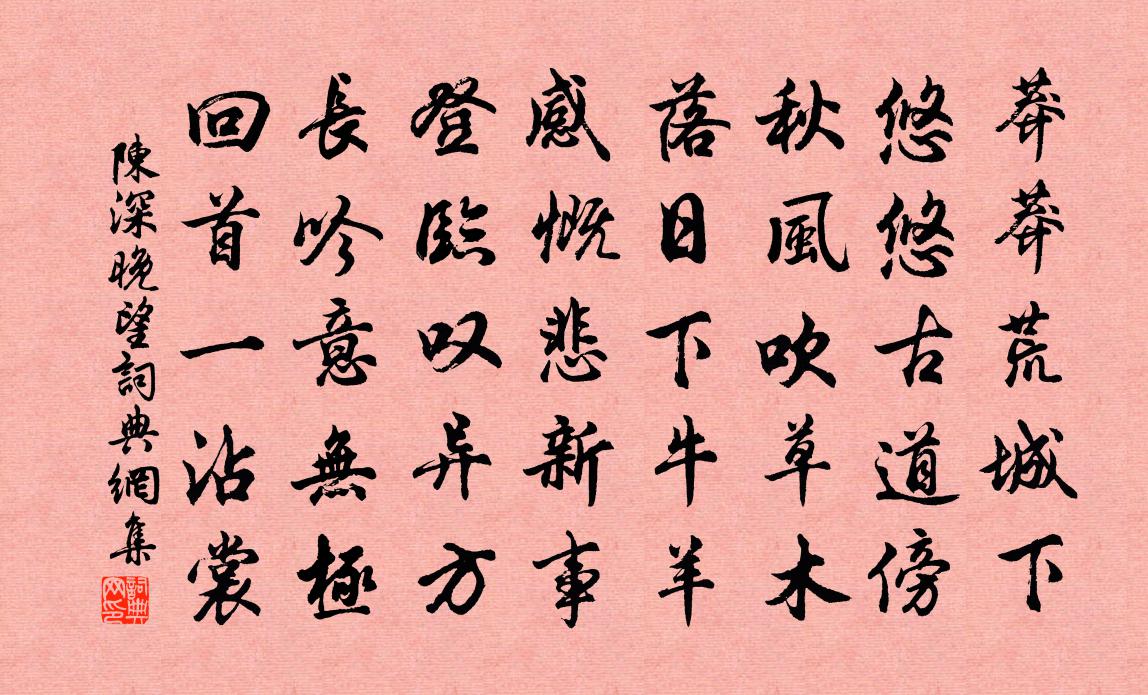 莽莽荒城下
悠悠古道傍
秋風吹草木
落日下牛羊
感慨悲新事
登臨叹异方
長吟意無極
回首一沾裳
陳深晚望詞典網集
詞典网印